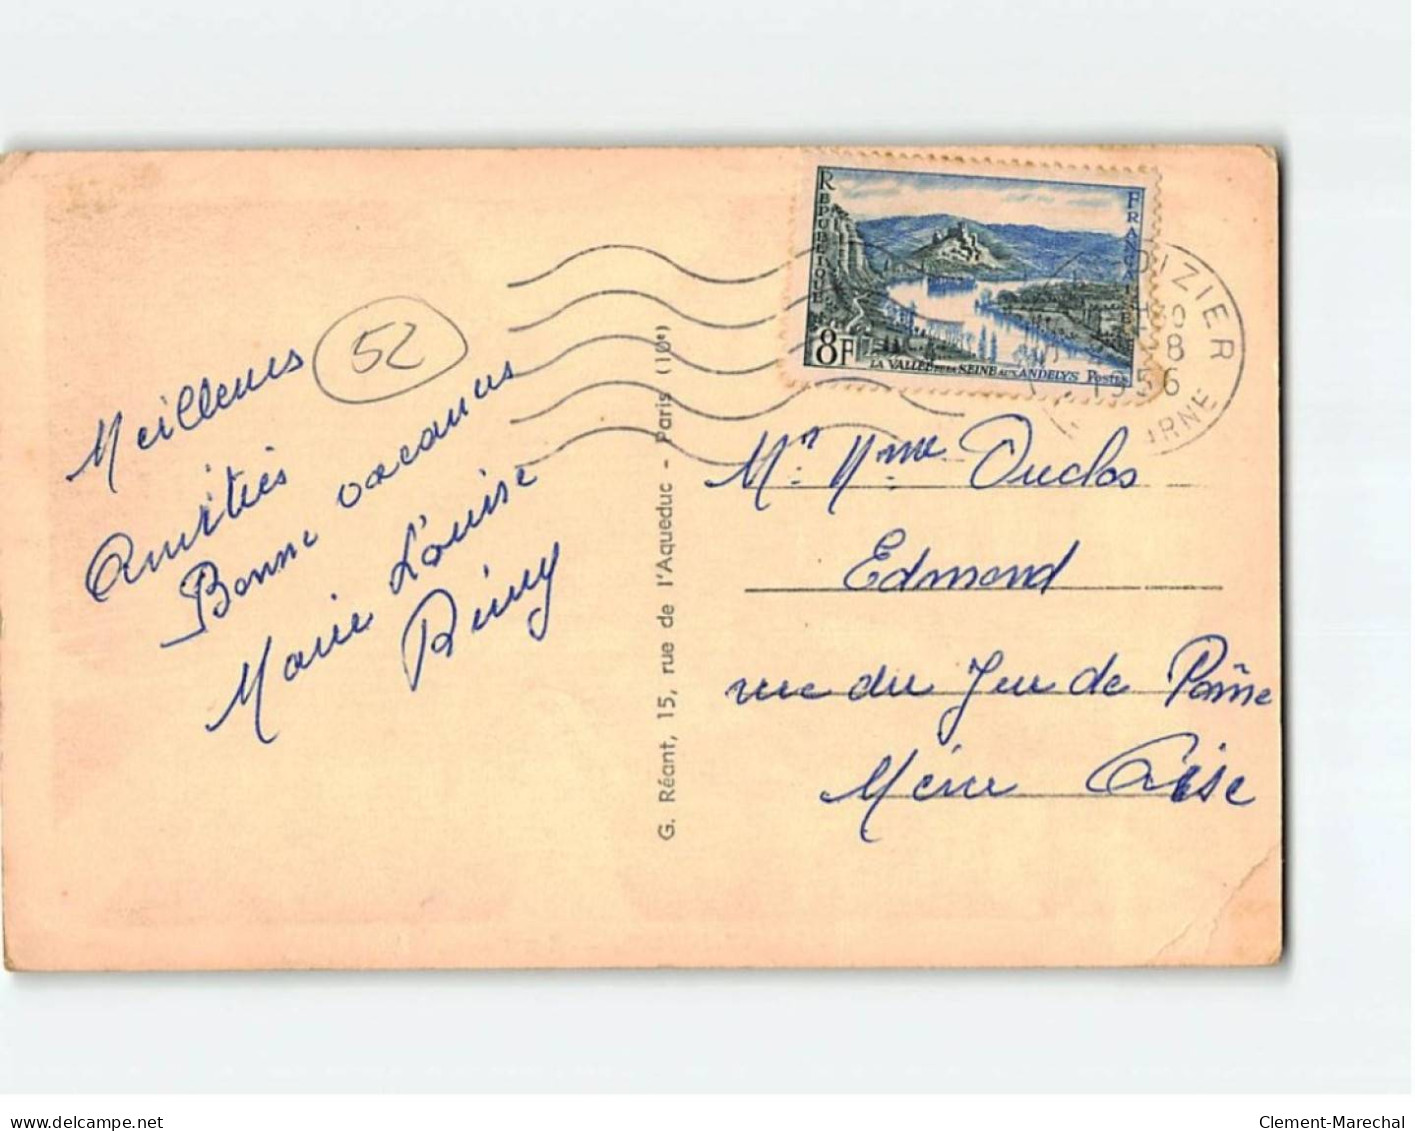 52
Meilleurs
Amitiés
Bonne vacances
Marie Louise
Rémy
G. Réant, 15, rue de l'Aqueduc - Paris (10e)
RÉPUBLIQUE FRANÇAISE
8F
LA VALLÉE DE LA SEINE AUX ANDELYS Postes
DIZIER
8
1956
RNE
Mr. Mme Duclos
Edmond
rue du Jeu de Paume
Méru Oise
delcampe.net
Clement-Marechal